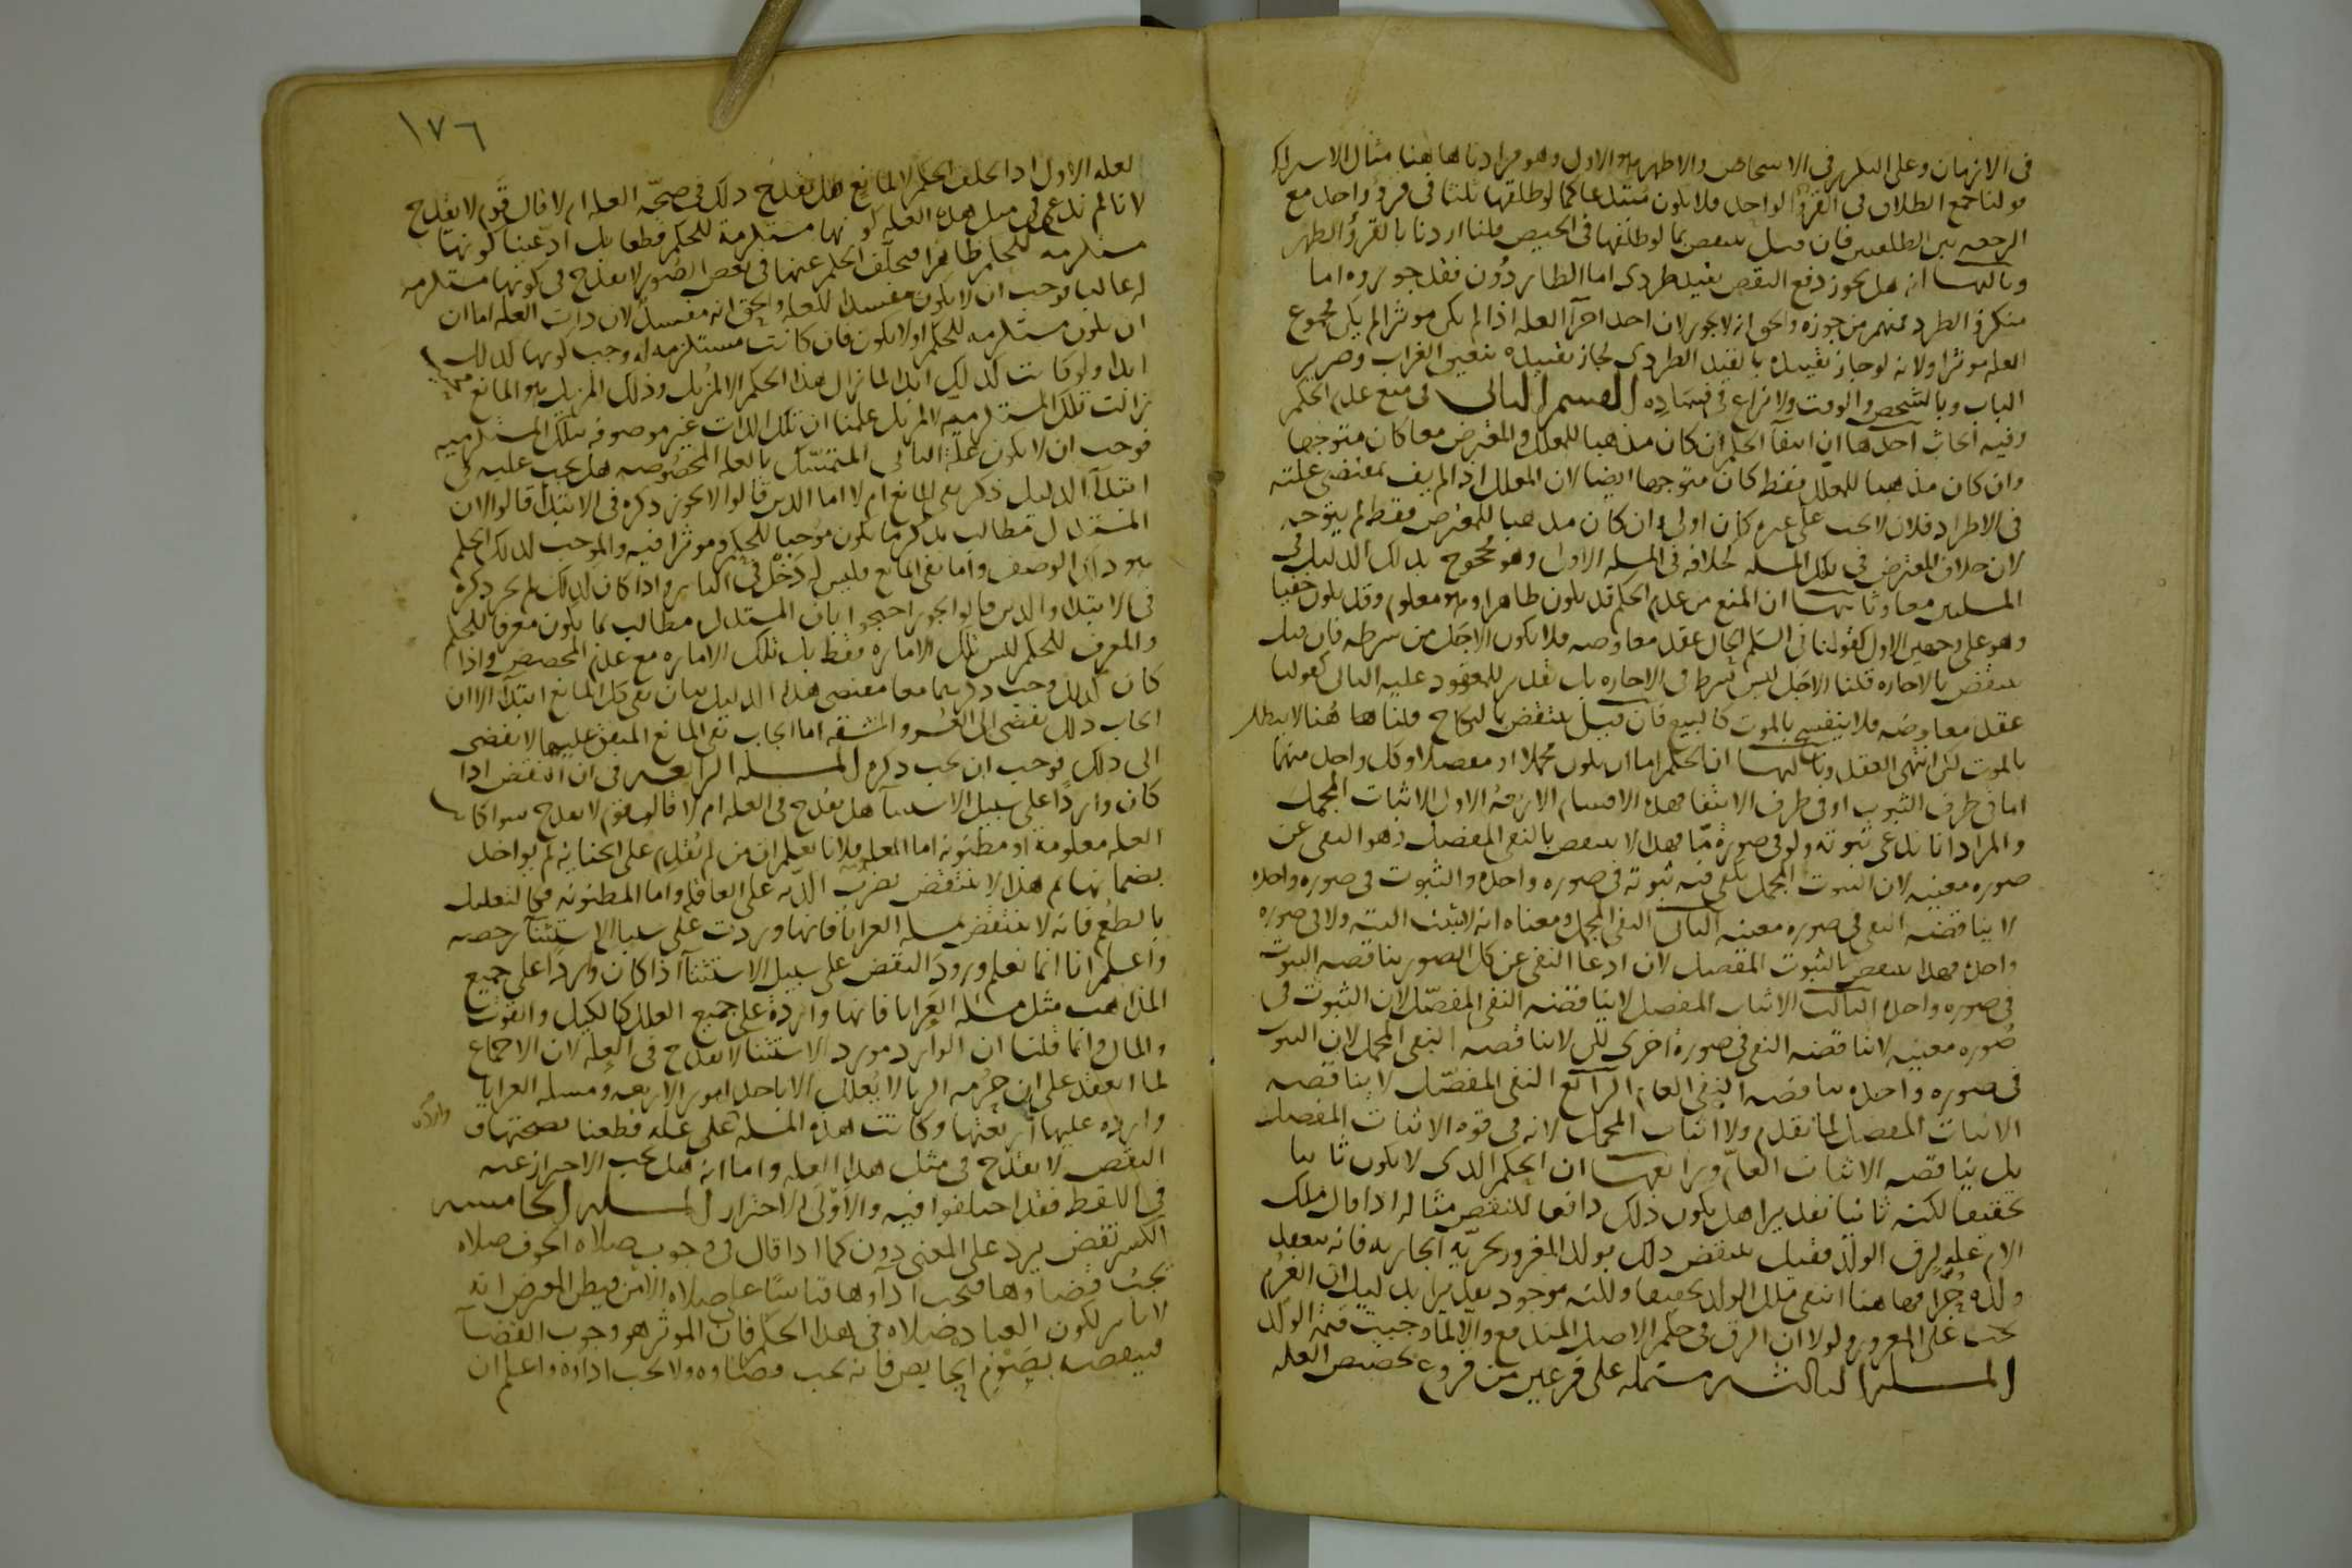 في الازمان وعلى البدل في الاشخاص والاظهر هو الاول وهو مرادنا هاهنا مثال الاشتراك
قولنا جمع الطلاق في القرؤ الواحد فلا يكون مبتدعا كما لو طلقها ثلثا في قرؤ واحد مع
الرجعه بين الطلقتين فان قيل ينتقض بما لو طلقها في الحيض قلنا اردنا بالقرؤ الطهر
وثالثها انه هل يجوز دفع النقض بقيد طردي اما الطاردون فقد جوزوه اما
منكرو الطرد فمنهم من جوزه والحق انه لا يجوز لان احد اجزآ العله اذا لم يكن موثرا لم يكن مجموع
العله موثرا ولانه لو جاز تقييده بالقيد الطردي لجاز تقييده بنعيق الغراب وصرير
الباب وبالشخص والوقت ولا نزاع في فساده القسم الثاني في منع عدم الحكم
وفيه ابحاث احدها ان انتفآ الحكم ان كان مذهبا للمعلل والمعترض معا كان متوجها
وان كان مذهبا للمعلل فقط كان متوجها ايضا لان المعلل اذا لم يف بمقتضى علته
في الاطراد فلان لا يجب على غيره كان اولى وان كان مذهبا للمعترض فقط لم يتوجه
لان خلاف المعترض في تلك المسله كخلافه في المسله الاولى وهو محجوج بذلك الدليل في
المسلتين معا وثانيها ان المنع من عدم الحكم قد يكون ظاهرا وهو معلوم وقد يكون خفيا
وهو على وجهين الاول كقولنا في السلم الحال عقد معاوضه فلا يكون الاجل من شرطه فان قيل
ينتقض بالاجاره قلنا الاجل ليس شرط في الاجاره بل تقدير للمعقود عليه الثاني كقولنا
عقد معاوضه فلا ينفسخ بالموت كالبيع فان قيل ينتقض بالنكاح قلنا ها هنا لا يبطل
بالموت لكن انتهى العقد وثالثها ان الحكم اما ان يكون مجملا او مفصلا وكل واحد منهما
اما في طرف الثبوت او في طرف الانتفا فهذه الاقسام الاربعة الاول الاثبات المجمل
والمراد انا ندعي ثبوته ولو في صورة ما فهذا لا ينتقض بالنفي المفصل وهو النفي عن
صوره معينه لان الثبوت المجمل يكفي فيه ثبوته في صوره واحده والثبوت في صوره واحده
لا يناقضه النفي في صوره معينه الثاني النفي المجمل ومعناه انه لا يثبت البته ولا في صوره
واحده فهذا ينتقض بالثبوت المفصل لان ادعا النفي عن كل الصور يناقضه الثبوت
في صوره واحده الثالث الاثبات المفصل لا يناقضه النفي المفصل لان الثبوت في
صوره معينه لا يناقضه النفي في صورة اخرى لكن لا يناقضه النفي المجمل لان الثبوت
في صوره واحده يناقضه النفي العام الرابع النفي المفصل لا يناقضه
الاثبات المفصل لما تقدم ولا اثبات المجمل لانه في قوه الاثبات المفصل
بل يناقضه الاثبات العام ورابعها ان الحكم الذي لا يكون ثابتا
تحقيقا لكنه ثابتا تقديرا هل يكون ذلك دافعا للنقض مثاله اذا قال ملك
الام عله لرق الولد فقيل ينتقض ذلك بولد المغرور بحريه الجاريه فانه ينعقد
ولده حرا فهاهنا انتفى ملك الولد تحقيقا ولكنه موجود تقديرا بدليل ان الغرم
يجب على المغرور ولولا ان الرق في حكم الاصل المندفع والا لما وجبت قيمة الولد
المسله الثالثه مشتمله على فرعين من فروع تخصيص العله
١٧٦
العله الاول اذا تخلف الحكم لا لمانع هل يقدح ذلك في صحة العله ام لا قال قوم لا يقدح
لانا لم ندع في مثل هذه العله كونها مستلزمة للحكم قطعا بل ادعينا كونها
مستلزمه للحكم ظاهرا فتخلف الحكم عنها في بعض الصور لا يقدح في كونها مستلزمه
له غالبا فوجب ان لا يكون مفسدا للعله والحق انه مفسد لان ذات العله اما ان
ان تكون مستلزمه للحكم او لا يكون فان كانت مستلزمه له وجب كونها كذلك
ابدا ولو كانت كذلك ابدا لما زال هذا الحكم الا لمزيل وذلك المزيل هو المانع فلما
زالت تلك المستلزميه لا لمزيل علمنا ان تلك الذات غير موصوفه بتلك المستلزميه
فوجب ان لا يكون علة الثاني المتمسك بالعله المخصوصه هل يجب عليه في
ابتدآ الدليل ذكر نفي المانع ام لا اما الذين قالوا لا يجوز ذكره في الابتدآ قالوا لان
المستدل مطالب بذكر ما يكون موجبا للحكم وموثرا فيه والموجب لذلك الحكم
هو ذلك الوصف واما نفي المانع فليس له دخل في التاثير واذا كان كذلك لم يجز ذكره
في الابتدا والذين قالوا يجوز احتجوا بان المستدل مطالب بما يكون معرفا للحكم
والمعرف للحكم ليس تلك الاماره فقط بل تلك الاماره مع عدم المخصص واذا
كان كذلك وجب ذكرهما معا مقتضى هذا الدليل بيان نفي كل المانع ابتدآ الا ان
ايجاب ذلك يفضي الى العسر والمشقه اما ايجاب نفي المانع المتفق عليهما لا يفضي
الى ذلك فوجب ان يجب ذكره المسله الرابعه في ان النقض اذا
كان واردا على سبيل الاستثنآ هل يقدح في العله ام لا قال قوم لا يقدح سوا كانت
العله معلومة او مظنونه اما المعلومه فلانا نعلم ان من لم يقدم على الجنايه لم يواخذ
بضمانها ثم هذا لا ينتقض بضرب الديه على العاقله واما المظنونه فكالتعليل
بالطعم فانه لا ينتقض بمسله العرايا فانها وردت على سبيل الاستثنآ رخصه
واعلم انا انما نعلم ورود النقض على سبيل الاستثنآ اذا كان واردا على جميع
المذاهب مثل مسله العرايا فانها واردة على جميع العلل كالكيل والقوت
والمال وانما قلنا ان الوارد مورد الاستثنا لا يقدح في العله لان الاجماع
لما انعقد على ان حرمه الربا لا يعلل الا باحد امور الاربعه ومسله العرايا
وارده عليها اربعتها وكانت هذه المسله على عله قطعنا بصحتها و
النقض لا يقدح في مثل هذه العله واما انه هل يجب الاحتراز عنه
في اللفظ فقد اختلفوا فيه والاولى الاحتراز المسله الخامسه
الكسر نقض يرد على المعنى دون كما اذا قال في وجوب صلاه الخوف صلاه
يجب قضاوها فيجب اداوها قياسا على صلاه الامن فيظن المعترض انه
لا تاثير لكون العباده صلاه في هذا الحكم فان الموثر هو وجوب القضآ
فينقضه بصوم الحايض فانه يجب قضاوه ولا يجب اداوه واعلم ان